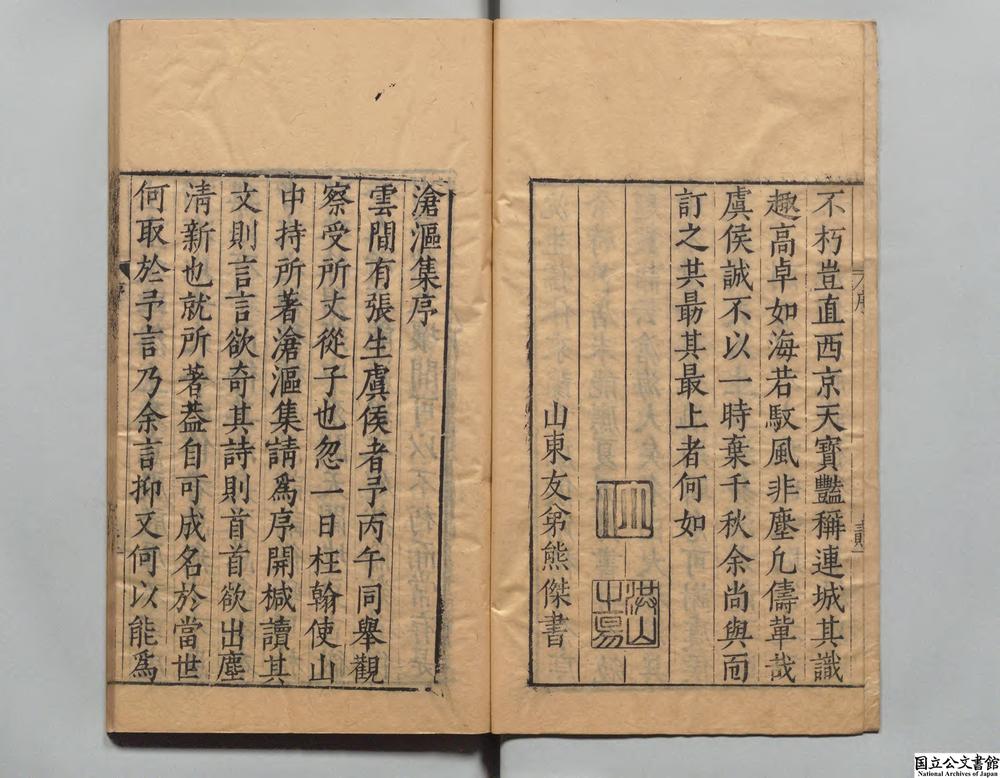 不朽豈直西京天寶豔稱連城其識
趣高卓如海若馭風非塵凡儔軰哉
虞侯誠不以一時棄千秋余尚與而
訂之其最其最上者何如
山東友弟熊傑書
洪山
中易
滄漚集序
雲間有張生虞侯者予丙午同舉觀
察受所丈從子也忽一日枉翰使山
中持所著滄漚集請爲序開椷讀其
文則言言欲奇其詩則首首欲出塵
清新也就所著葢自可成名於當世
何取於予言乃余言抑又何以能爲
国立公文書館
National Archives of Japan